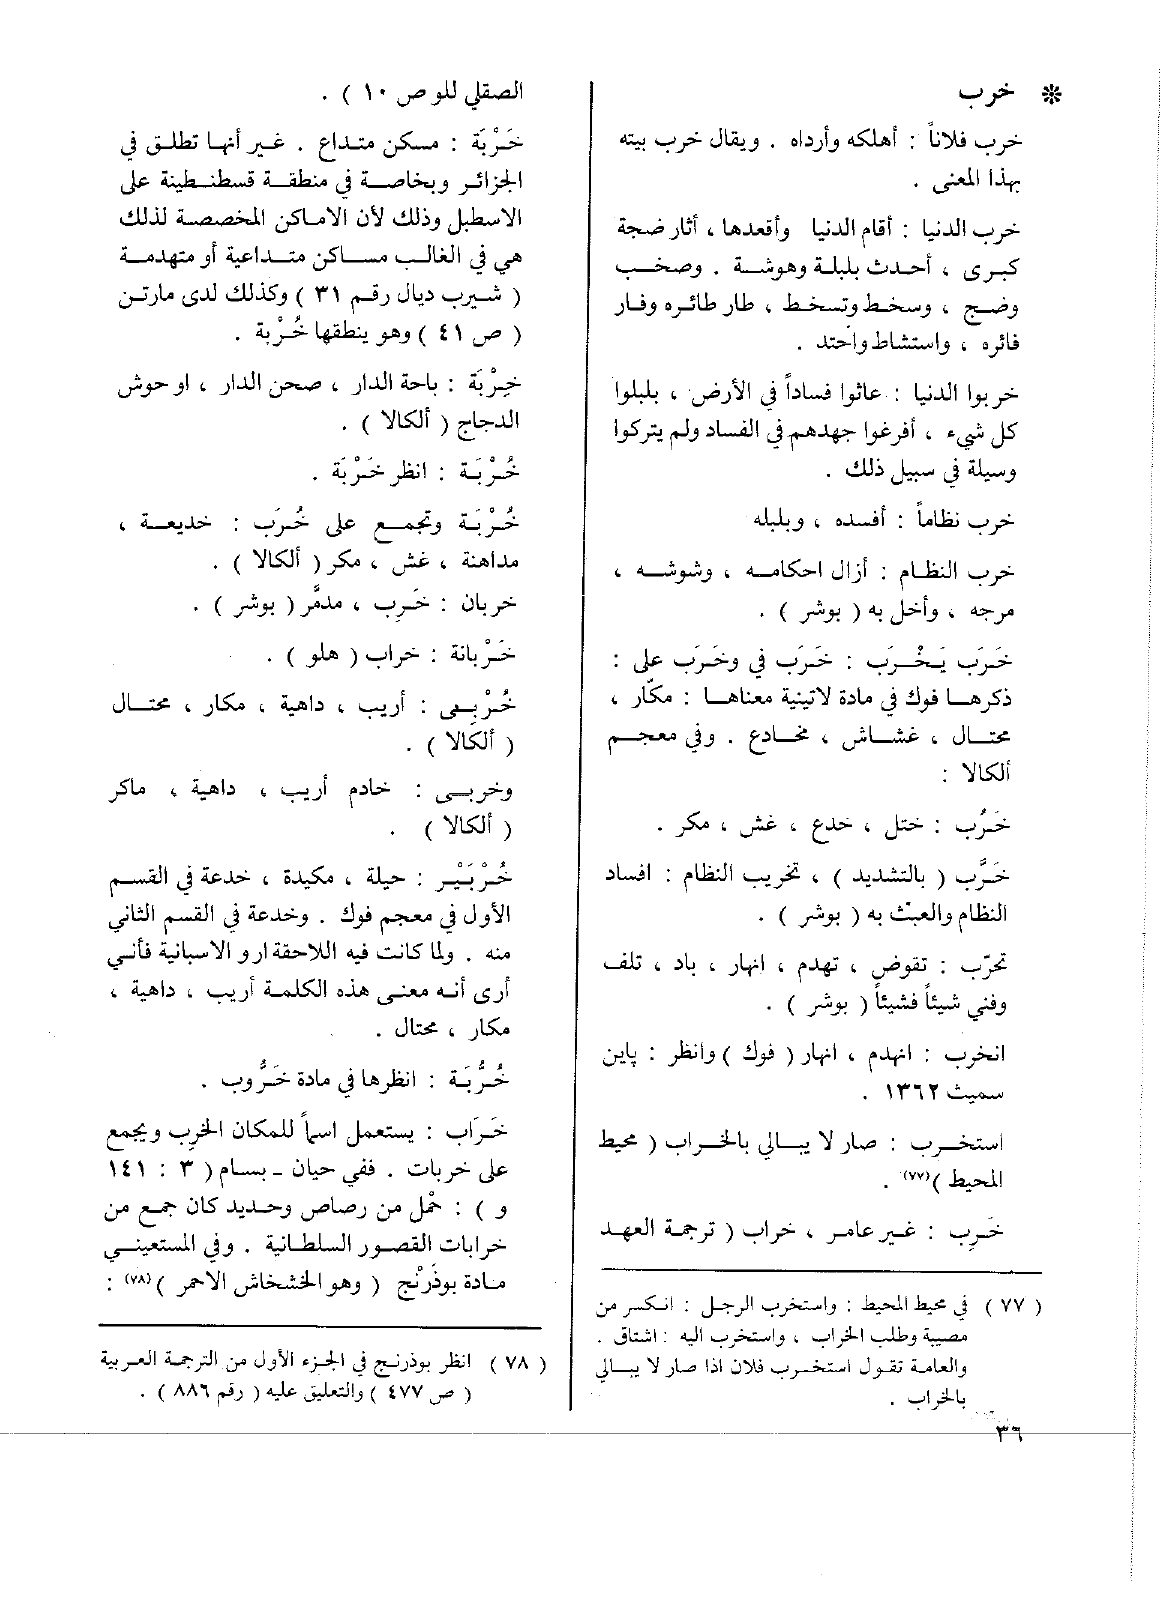 * خرب
خرب فلاناً : أهلكه وأرداه . ويقال خرب بيته
بهذا المعنى .
خرب الدنيا : أقام الدنيا وأقعدها ، أثار ضجة
كبرى ، أحدث بلبلة وهوشة . وصخب
وضج ، وسخط وتسخط ، طار طائره وفار
فائره ، واستشاط واحتد .
خربوا الدنيا : عاثوا فساداً في الأرض ، بلبلوا
كل شيء ، أفرغوا جهدهم في الفساد ولم يتركوا
وسيلة في سبيل ذلك .
خرب نظاماً : أفسده ، وبلبله
خرب النظام : أزال احكامه ، وشوشه ،
مرجه ، وأخل به ( بوشر ) .
خَرَب يَخْرَب : خَرَب في وخَرَب على :
ذكرها فوك في مادة لاتينية معناها : مكّار ،
محتال ، غشاش ، مخادع . وفي معجم
ألكالا :
خَرُب : ختل ، خدع ، غش ، مكر .
خَرَّب ( بالتشديد ) ، تخريب النظام : افساد
النظام والعبث به ( بوشر ) .
تخرّب : تقوض ، تهدم ، انهار ، باد ، تلف
وفني شيئاً فشيئاً ( بوشر ) .
انخرب : انهدم ، انهار ( فوك ) وانظر : پاين
سميث ١٣٦٢ .
استخرب : صار لا يبالي بالخراب ( محيط
المحيط )(٧٧) .
خَرِب : غير عامر ، خراب ( ترجمة العهد
( ٧٧ ) في محيط المحيط : واستخرب الرجل : انكسر من
مصيبة وطلب الخراب ، واستخرب اليه : اشتاق .
والعامة تقول استخرب فلان اذا صار لا يبالي
بالخراب .
٣٦
الصقلي للو ص ١٠ ) .
خَرْبَة : مسكن متداع . غير أنها تطلق في
الجزائر وبخاصة في منطقة قسطنطينة على
الاسطبل وذلك لأن الاماكن المخصصة لذلك
هي في الغالب مساكن متداعية أو متهدمة
( شيرب ديال رقم ٣١ ) وكذلك لدى مارتن
( ص ٤١ ) وهو ينطقها خُرْبة .
خِرْبَة : باحة الدار ، صحن الدار ، او حوش
الدجاج ( ألكالا ) .
خُرْبَة : انظر خَرْبَة .
خُرْبَة وتجمع على خُرَب : خديعة ،
مداهنة ، غش ، مكر ( ألكالا ) .
خربان : خَرِب ، مدمَّر ( بوشر ) .
خَرْبانة : خراب ( هلو ) .
خُرْبِى : أريب ، داهية ، مكار ، محتال
( ألكالا ) .
وخربى : خادم أريب ، داهية ، ماكر
( ألكالا ) .
خُرْبَيْر : حيلة ، مكيدة ، خدعة في القسم
الأول في معجم فوك . وخدعة في القسم الثاني
منه . ولما كانت فيه اللاحقة ارو الاسبانية فأني
أرى أنه معنى هذه الكلمة أريب ، داهية ،
مكار ، محتال .
خُرُّبَة : انظرها في مادة خَرُّوب .
خَرَاب : يستعمل اسماً للمكان الخرب ويجمع
على خربات . ففي حيان ـ بسام ( ٣ : ١٤١
و ) : حُمل من رصاص وحديد كان جمع من
خرابات القصور السلطانية . وفي المستعيني
مادة بوذَرَنْج ( وهو الخشخاش الاحمر )(٧٨) :
( ٧٨ ) انظر بوذرنج في الجزء الأول من الترجمة العربية
( ص ٤٧٧ ) والتعليق عليه ( رقم ٨٨٦ ) .